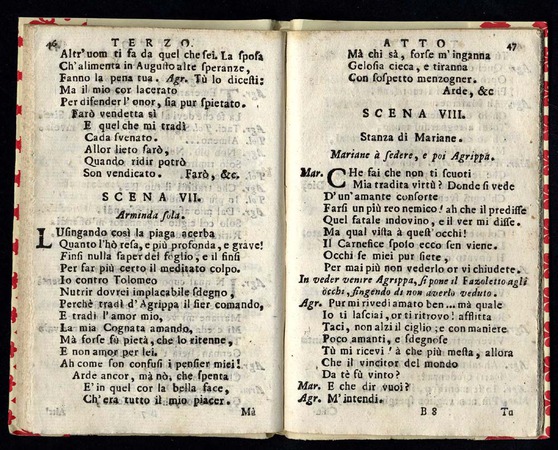 46 TERZO.
Altr'uom ti fa da quel che sei. La sposa
Ch'alimenta in Augusto alte speranze,
Fanno la pena tua. Agr. Tù lo dicesti:
Ma il mio cor lacerato
Per difender l'onor, sia pur spietato.
Farò vendetta sì
E quel che mi tradì
Cada svenato.
Allor lieto farò,
Quando ridir potrò
Son vendicato. Farò, &c.
SCENA VII.
Arminda sola.
LUsingando così la piaga acerba
Quanto l'hò resa, e più profonda, e grave!
Finsi nulla saper del foglio, e il finsi
Per far più certo il meditato colpo.
Io contro Tolomeo
Nutrir dovrei implacabile sdegno,
Perchè tradì d'Agrippa il fier comando,
E tradì l'amor mio,
La mia Cognata amando,
Mà forse fù pietà, che lo ritenne,
E non amor per lei.
Ah come son confusi i pensier miei!
Arde ancor, mà nò, che spenta
E' in quel cor la bella face,
Ch'era tutto il mio piacer.
Mà
ATTO 47
Mà chi sà, forse m'inganna
Gelosia cieca, e tiranna
Con sospetto menzogner.
Arde, &c
SCENA VIII.
Stanza di Mariane.
Mariane à sedere, e poi Agrippa.
Mar. CHe fai che non ti scuoti
Mia tradita virtù? Donde si vede
D'un'amante consorte
Farsi un più reo nemico! ah che il predisse
Quel fatale indovino, e il ver mi disse.
Ma qual vista à quest'occhi!
Il Carnefice sposo ecco sen viene.
Occhi se miei pur siere,
Per mai più non vederlo or vi chiudete.
In veder venire Agrippa, si pone il Fazoletto agli
occhi, fingendo di non averlo veduto.
Agr. Pur mi rivedi amato ben... mà quale
Io ti lasciai, or ti ritrovo! afflitta
Taci, non alzi il ciglio; e con maniere
Poco amanti, e sdegnose
Tù mi ricevi! à che più mesta, allora
Che il vincitor del mondo
Da tè fù vinto?
Mar. E che dir vuoi?
Agr. M'intendi.
B 8 Tu